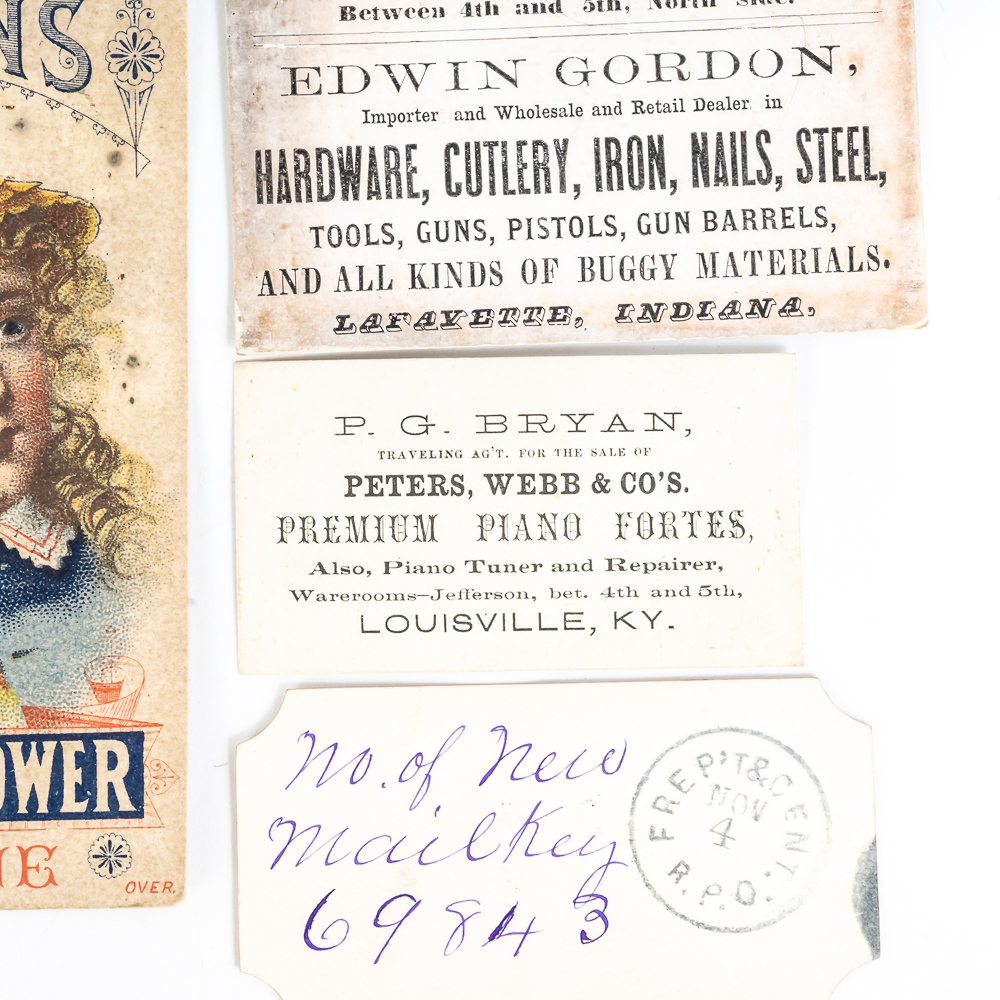 NS
OWER
NE
OVER.
Between 4th and 5th, North Side.
EDWIN GORDON,
Importer and Wholesale and Retail Dealer in
HARDWARE, CUTLERY, IRON, NAILS, STEEL,
TOOLS, GUNS, PISTOLS, GUN BARRELS,
AND ALL KINDS OF BUGGY MATERIALS.
LAFAYETTE, INDIANA.
P. G. BRYAN,
TRAVELING AG'T. FOR THE SALE OF
PETERS, WEBB & CO'S.
PREMIUM PIANO FORTES,
Also, Piano Tuner and Repairer,
Warerooms–Jefferson, bet. 4th and 5th,
LOUISVILLE, KY.
No. of New
Mail Key
69843
FREEP'T & CENT.
NOV
4
R.P.O.